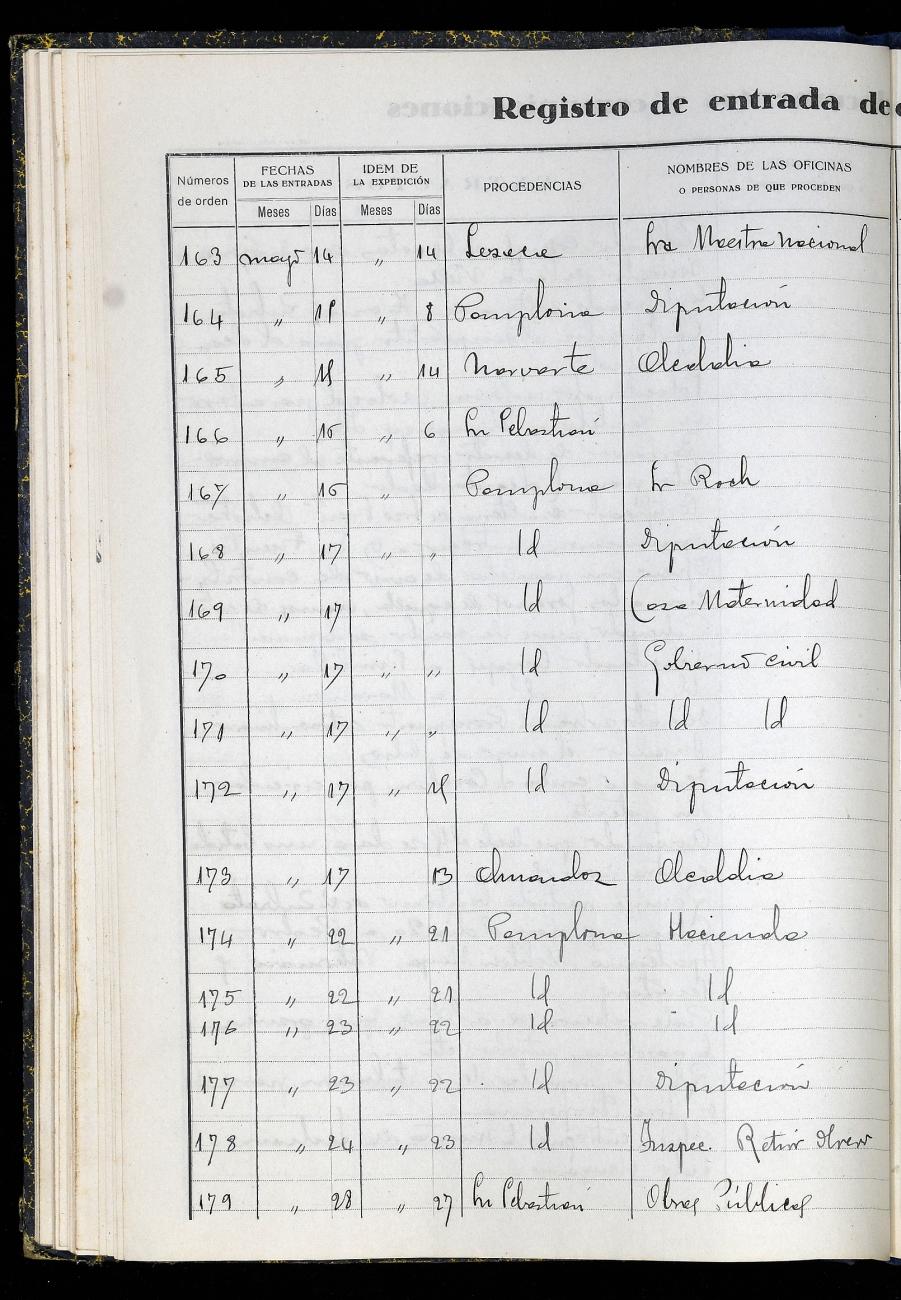 Registro de entrada de
Números de orden | FECHAS DE LAS ENTRADAS | IDEM DE LA EXPEDICIÓN | PROCEDENCIAS | NOMBRES DE LAS OFICINAS O PERSONAS DE QUE PROCEDEN
Meses | Días | Meses | Días
163 mayo 14 " 14 Lesaca Sra Maestra Nacional
164 " 15 " 8 Pamplona Diputación
165 " 15 " 14 Narvarte Alcaldia
166 " 16 " 6 Sn Sebastian
167 " 16 " Pamplona Sr Roch
168 " 17 " " Id Diputación
169 " 17 Id Casa Maternidad
170 " 17 " " Id Gobierno civil
171 " 17 " " Id Id Id
172 " 17 " 15 Id Diputación
173 " 17 13 Almandoz Alcaldia
174 " 22 " 21 Pamplona Hacienda
175 " 22 " 21 Id Id
176 " 23 " 22 Id Id
177 " 23 " 22 Id Diputación
178 " 24 " 23 Id Inspec. Retiro Obrero
179 " 28 " 27 Sn Sebastian Obras Públicas